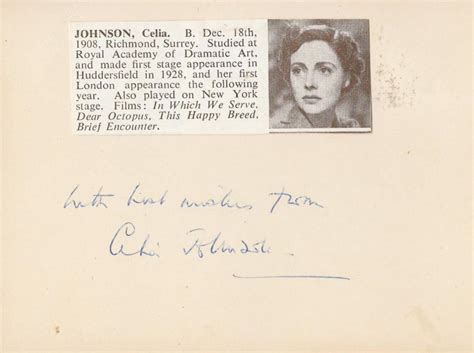 JOHNSON, Celia. B. Dec. 18th,
1908, Richmond, Surrey. Studied at
Royal Academy of Dramatic Art,
and made first stage appearance in
Huddersfield in 1928, and her first
London appearance the following
year. Also played on New York
stage. Films: In Which We Serve,
Dear Octopus, This Happy Breed,
Brief Encounter.
with best wishes from
Celia Johnson